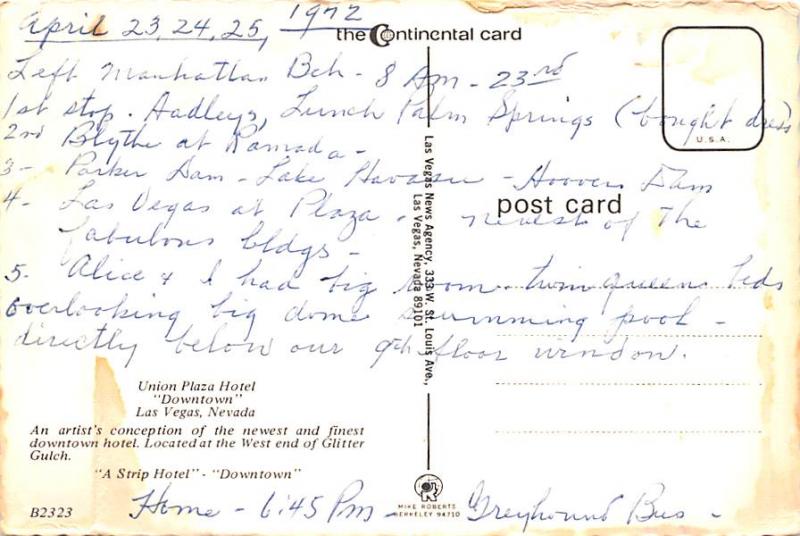 April 23, 24, 25, 1972
the Continental card
Left Manhattan Bch - 8 Am - 23rd
1st stop. Hadleys, Lunch Palm Springs (bought dress
2nd Blythe at Ramada -
3- Parker Dam - Lake Havasu - Hoover Dam
4- Las Vegas at Plaza - newest of the
fabulous bldgs -
5- Alice & I had big room - twin queen beds
overlooking big dome swimming pool -
directly below our 9th floor window.
U.S.A.
post card
Las Vegas News Agency, 333 W. St. Louis Ave.,
Las Vegas, Nevada 89101
Union Plaza Hotel
"Downtown"
Las Vegas, Nevada
An artist's conception of the newest and finest
downtown hotel. Located at the West end of Glitter
Gulch.
"A Strip Hotel" - "Downtown"
B2323
Home - 6:45 Pm - Greyhound Bus -
MIKE ROBERTS
BERKELEY 94710